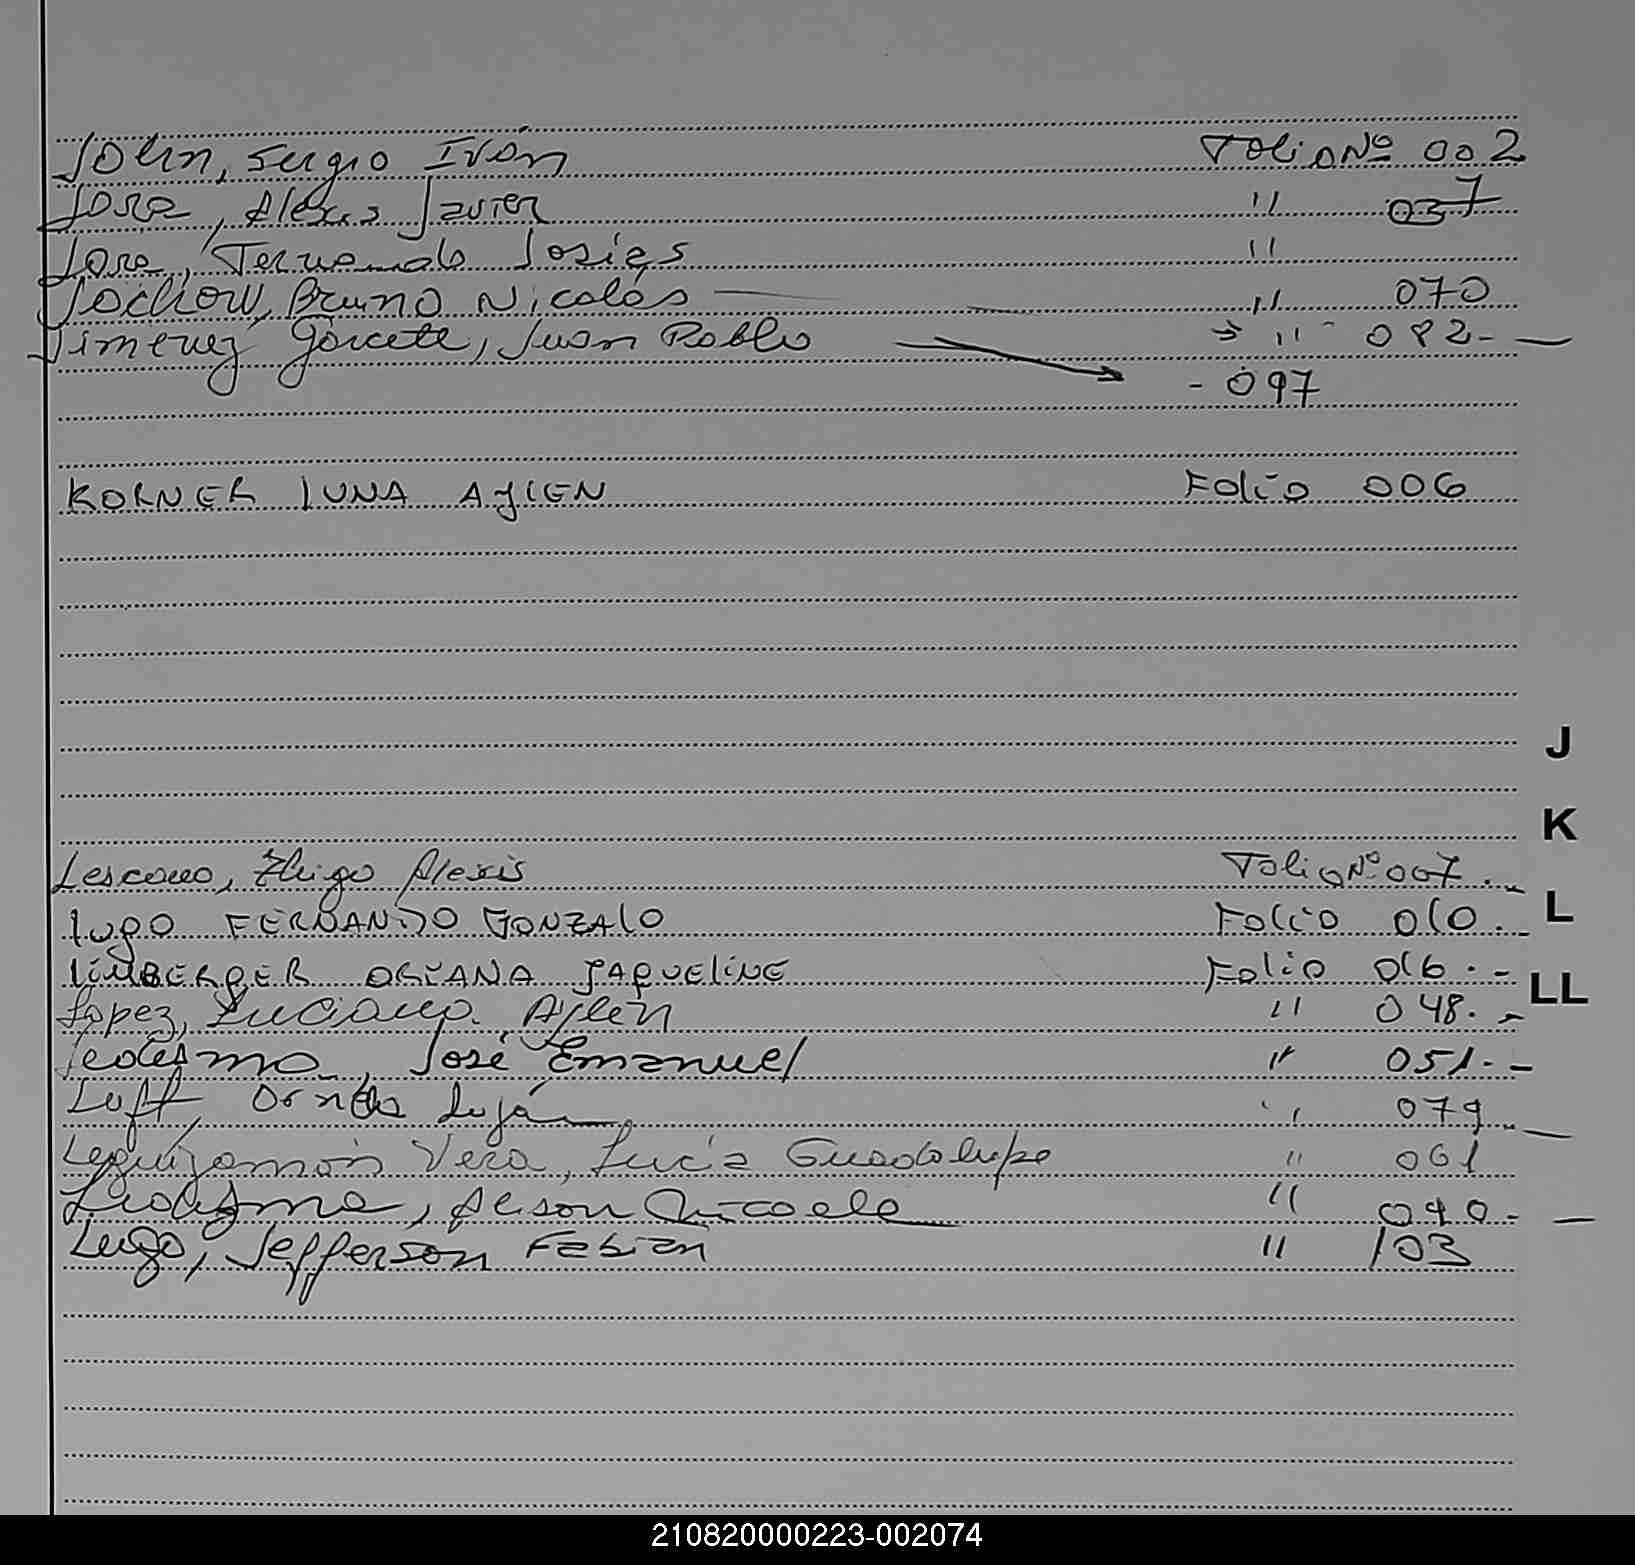 John, Sergio Iván Folio Nº 002
Jara, Alexis Javier " 037
Jara, Fernando Josías "
Jochow, Bruno Nicolás " 070
Jimenez Garcete, Juan Pablo → " - 082 -
- 097
KORNER LUNA AYLEN Folio 006
J
K
Lescano, Thiago Alexis Folio Nº 007.
lugo FERNANDO GONZAlO Folio 010. L
LIMBERGER ORIANA JAQUElINE Folio 016. -
LL
Lopez, Luciana Aylen " 048. -
Ledesma, José Emanuel " 051. -
Luft, Ornela Luján " 079
Leguizamón Vera, Lucía Guadalupe " 061
Ledesma, Alison Micaela " 090 -
Lugo, Jefferson Fabian " 103
210820000223-002074